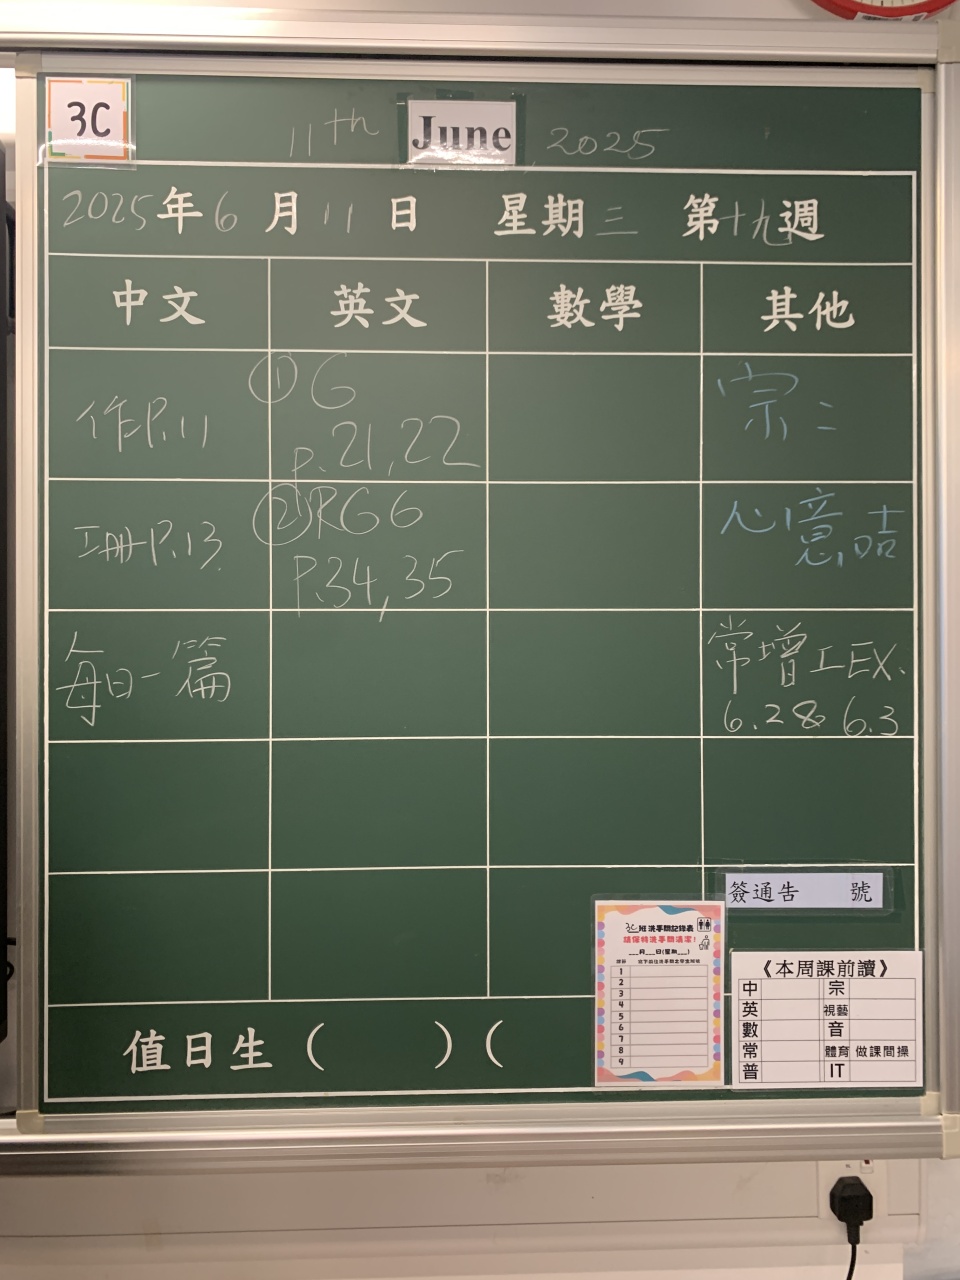 3C
11th June, 2025
2025年6月11日 星期三 第十九週
中文 英文 數學 其他
作P.11
① G
P.21,22
宗二
工冊P.13
② RG6
P.34,35
心意咭
每日一篇
常增工EX.
6.2 & 6.3
簽通告 號
3C班洗手間記錄表
請保持洗手間清潔!
___月___日(星期___)
1
2
3
4
5
6
7
8
9
《本周課前讀》
中 宗
英 視藝
數 音
常 體育 做課間操
普 IT
值日生( )(